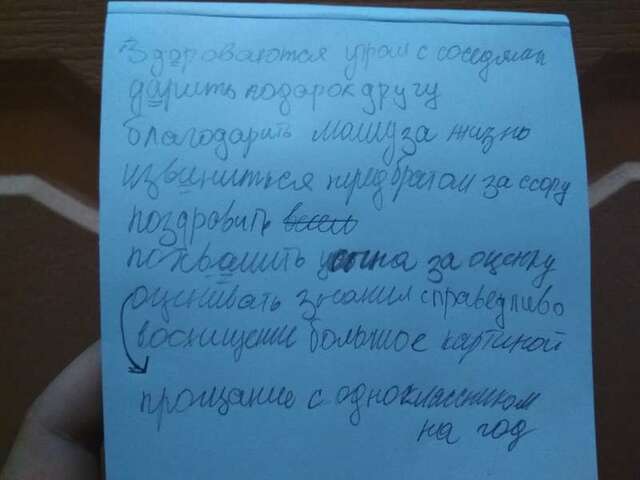 Здороваются утром с соседями
дарить подарок другу
благодарить маму за жизнь
извиниться перед братом за ссору
поздравить
похвалить сына за оценку
оценивать знания справедливо
восхищение большое картиной
прощание с одноклассником
на год